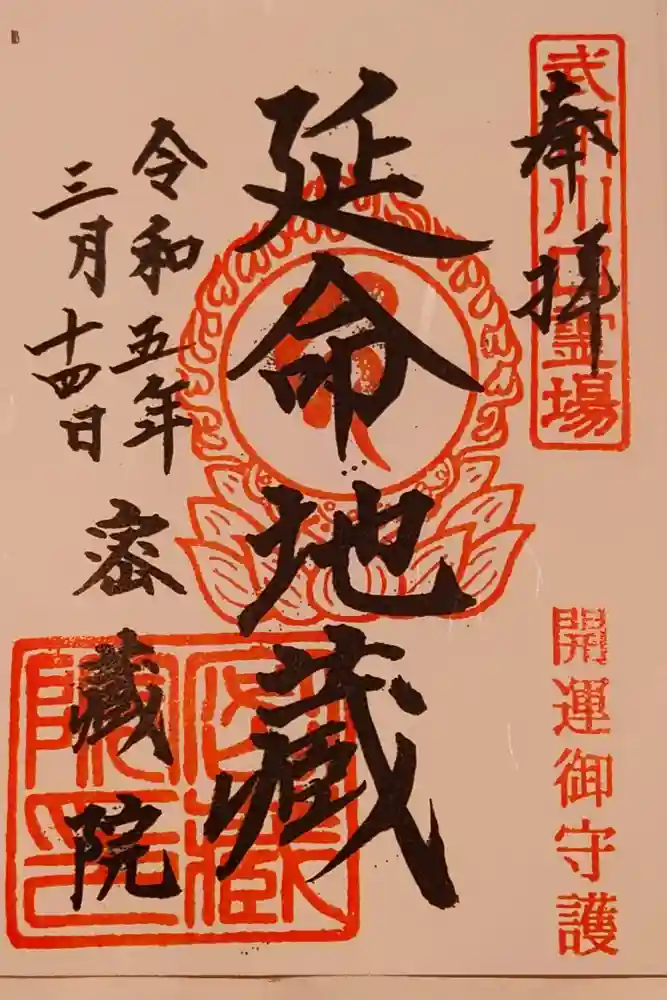 武州川口霊場
奉拝
開運御守護
延命地蔵
令和五年
三月十四日
密蔵院
密蔵院印